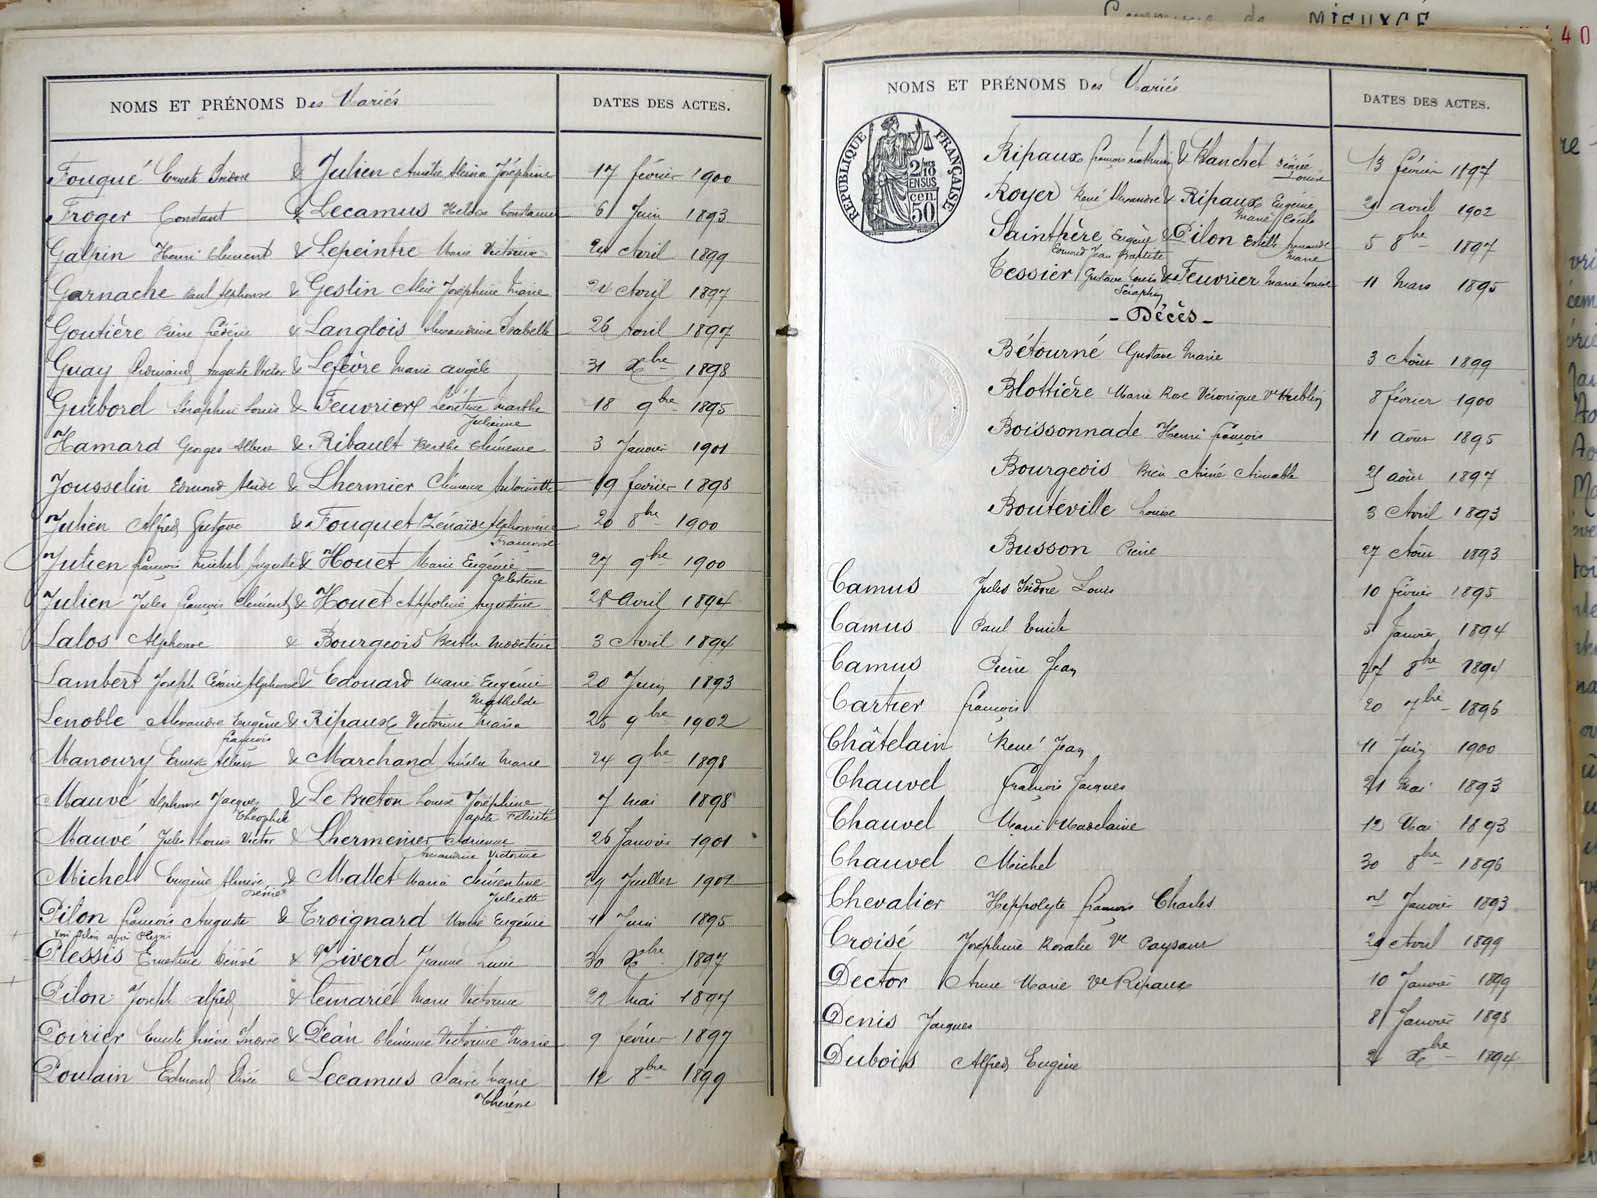 Commune de MIEUXCÉ
40
NOMS ET PRÉNOMS Des Mariés
DATES DES ACTES.
Fouqué Ernest Isidore & Julien Amélie Joséphine 17 février 1900
Froger Constant & Lecamus Constance 6 Juin 1893
Galpin Henri Clément & Lepeintre Marie Victorine Avril 1899
Garnache Paul Alphonse & Geslin Joséphine Marie Avril 1897
Goutière Pierre Frédéric & Langlois Alexandrine Isabelle 26 avril 1897
Guay Auguste Victor & Lefèvre Marie Angèle 31 Xbre 1898
Guibord Séraphin Louis & Feuvrier Marthe 18 9bre 1895
Julienne
Hamard Georges Albert & Ribault Berthe Clémence 3 Janvier 1901
Jousselin Edmond & Lhermier Clémence Antoinette 19 février 1898
Julien Alfred Gustave & Fouquet Zénaïde Alphonsine 20 8bre 1900
Françoise
Julien François Michel Auguste & Houet Marie Eugénie 27 9bre 1900
Célestine
Julien Jules François Clément & Houet Appoline Augustine 28 Avril 1894
Lalos Alphonse & Bourgeois Berthe Modestine 3 Avril 1894
Lambert Joseph Alphonse & Edouard Marie Eugénie 20 Juin 1893
Mathilde
Lenoble Alexandre Eugène & Ripaux Victorine Maria 25 9bre 1902
François
Manoury Ernest Albert & Marchand Amélie Marie 24 9bre 1898
Mauvé Alphonse Jacques & Le Breton Louise Joséphine 7 Mai 1898
Théophile Félicité
Mauvé Jules Louis Victor & Lhermenier Adrienne 26 Janvier 1901
Amandine Victorine
Michel Eugène & Mallet Maria Clémentine Juillet
Désiré Juliette
Pilon François Auguste & Troignard Marie Eugénie 11 Juin 1895
voir Pilon après Plessis
Plessis Ernestine Désiré & Riverd Jeanne Lucie 30 Xbre 1897
Pilon Joseph Alfred & Lemariel Marie Victorine 22 Mai 1897
Poirier Emile & Déan Clémence Victorine Marie 9 février 1897
Poulain Edmond & Lecamus Claire Marie 12 8bre 1899
Thérèse
NOMS ET PRÉNOMS Des Mariés
DATES DES ACTES.
RÉPUBLIQUE FRANÇAISE
2/10 EN SUS
50 cen.
Ripaux François Mathurin & Blanchet Désirée 13 février 1897
Louise
Royer René Alexandre & Ripaux Eugénie avril 1902
Marie Cécile
Sainthère Eugène & Pilon Estelle Armande 5 8bre 1897
Edmond Jean Baptiste Marie
Tessier Gustave Louis & Feuvrier Marie Louise 11 Mars 1895
Séraphin
- Décès -
Bétourné Gustave Marie 3 Août 1899
Blottière Marie Rose Véronique Ve 8 février 1900
Boissonnade Henri François 11 Août 1895
Bourgeois Aimé Aimable août 1897
Bouteville Louise 3 Avril 1893
Busson Pierre 27 Août 1893
Camus Jules Isidore Louis 10 février 1895
Camus Paul Emile 5 Janvier 1894
Camus Pierre Jean 8bre 1894
Cartier François 20 7bre 1896
Châtelain René Jean 11 Juin 1900
Chauvel François Jacques 21 Mai 1893
Chauvel Marie Madelaine 12 Mai 1893
Chauvel Michel 30 8bre 1896
Chevalier Hippolyte François Charles Janvier 1893
Croisé Joséphine Rosalie Ve Paysant Avril 1899
Dector Anne Marie Ve Ripaux 10 Janvier 1899
Denis Jacques 8 Janvier 1898
Dubois Alfred Eugène Xbre 1894